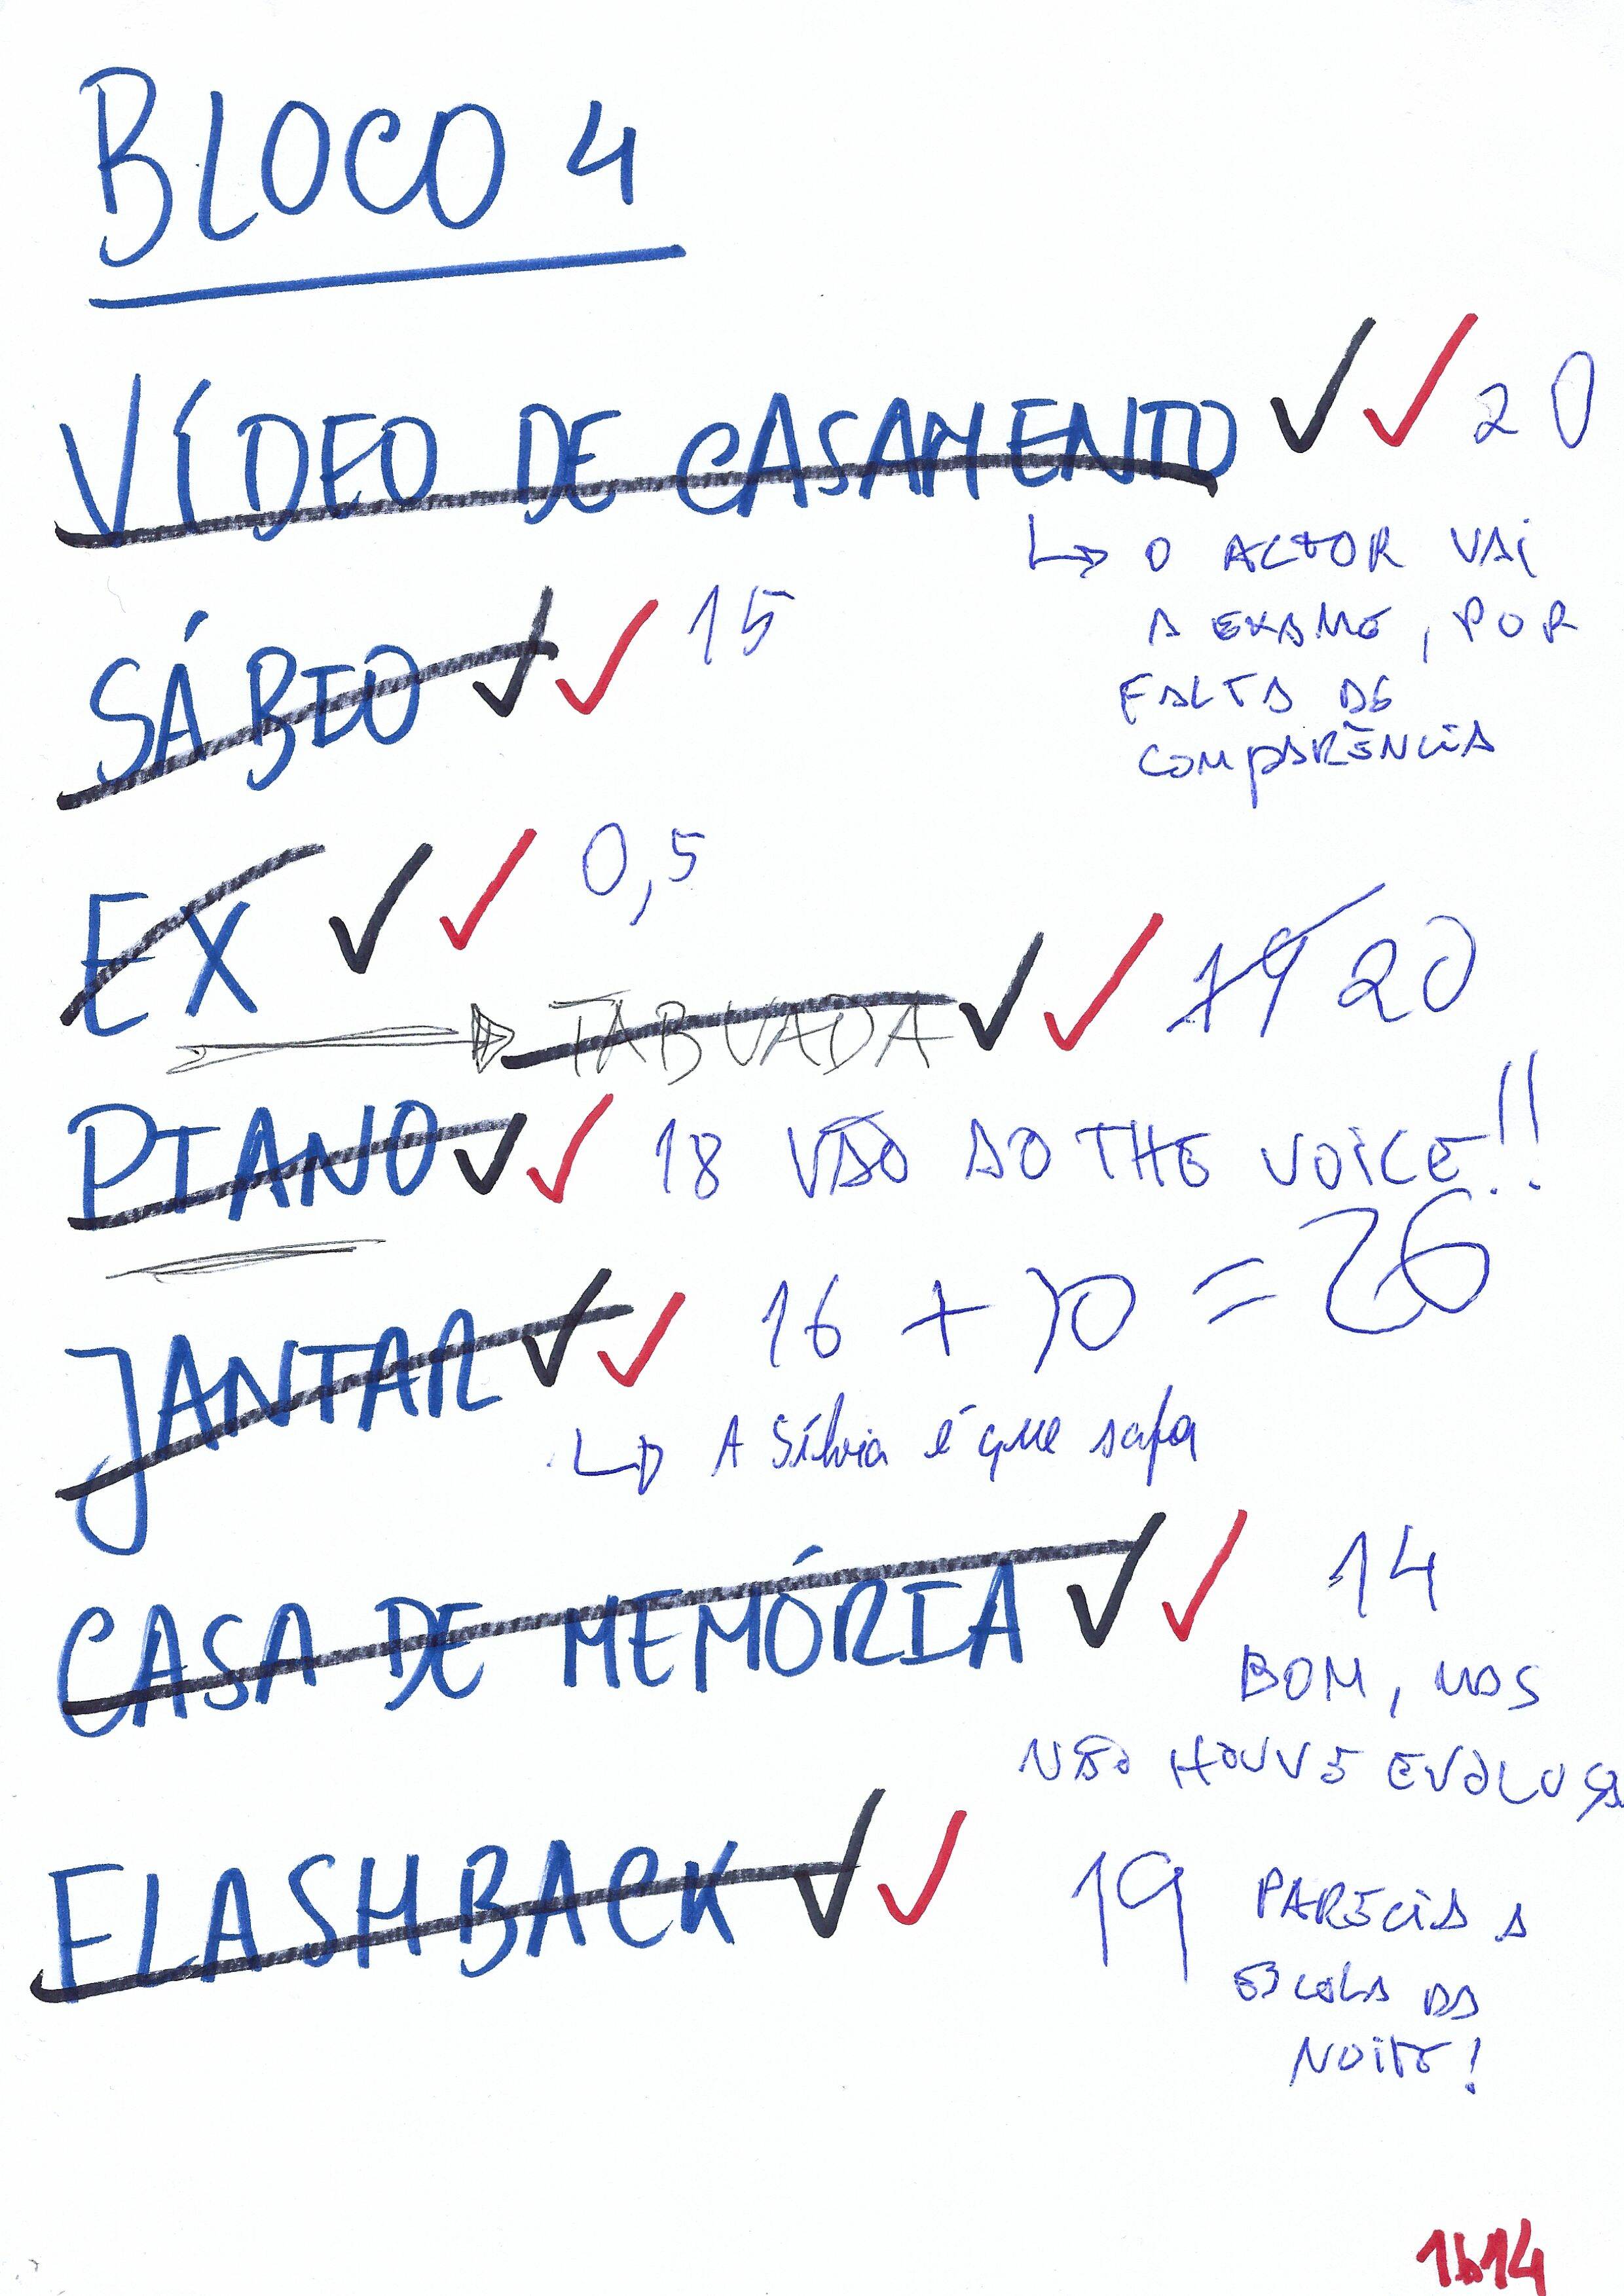 BLOCO 4
VÍDEO DE CASAMENTO ✓✓ 20
↳ O ACTOR VAI
A EXAME, POR
FALTA DE
COMPARÊNCIA
SÁBIO ✓✓ 15
EX ✓✓ 0,5
→ TABUADA ✓✓ 19 20
PIANO ✓✓ 18 VÃO AO THE VOICE!!
JANTAR ✓✓ 16 + 10 = 26
↳ A Sílvia é que safa
CASA DE MEMÓRIA ✓✓ 14
BOM, MAS
NÃO HOUVE EVOLUÇÃ
FLASHBACK ✓✓ 19 PARECIA A
ESCOLA DA
NOITE!